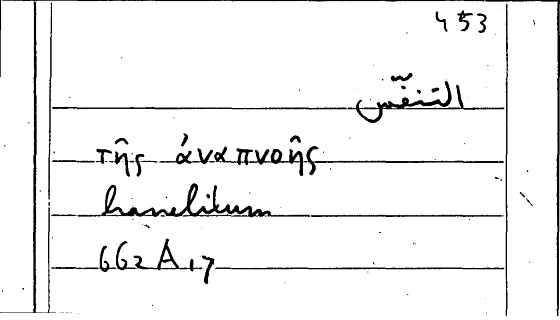 453
التنفّس
τῆς ἀναπνοῆς
hanelitum
662 A 17